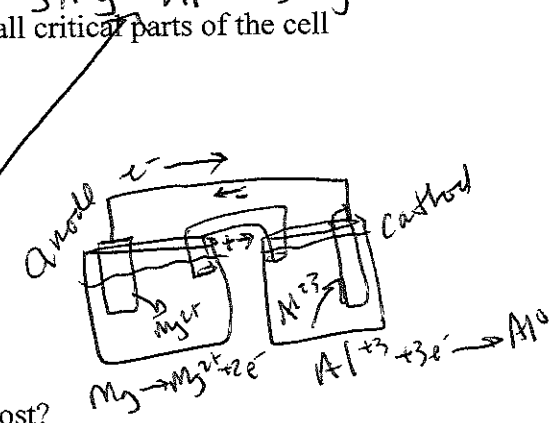 all critical parts of the cell
e⁻ →
anode
cathod
←-
+→
Mg²⁺
Al⁺³
Mg→Mg²⁺+2e⁻
Al⁺³+3e⁻→Al⁰
ost?